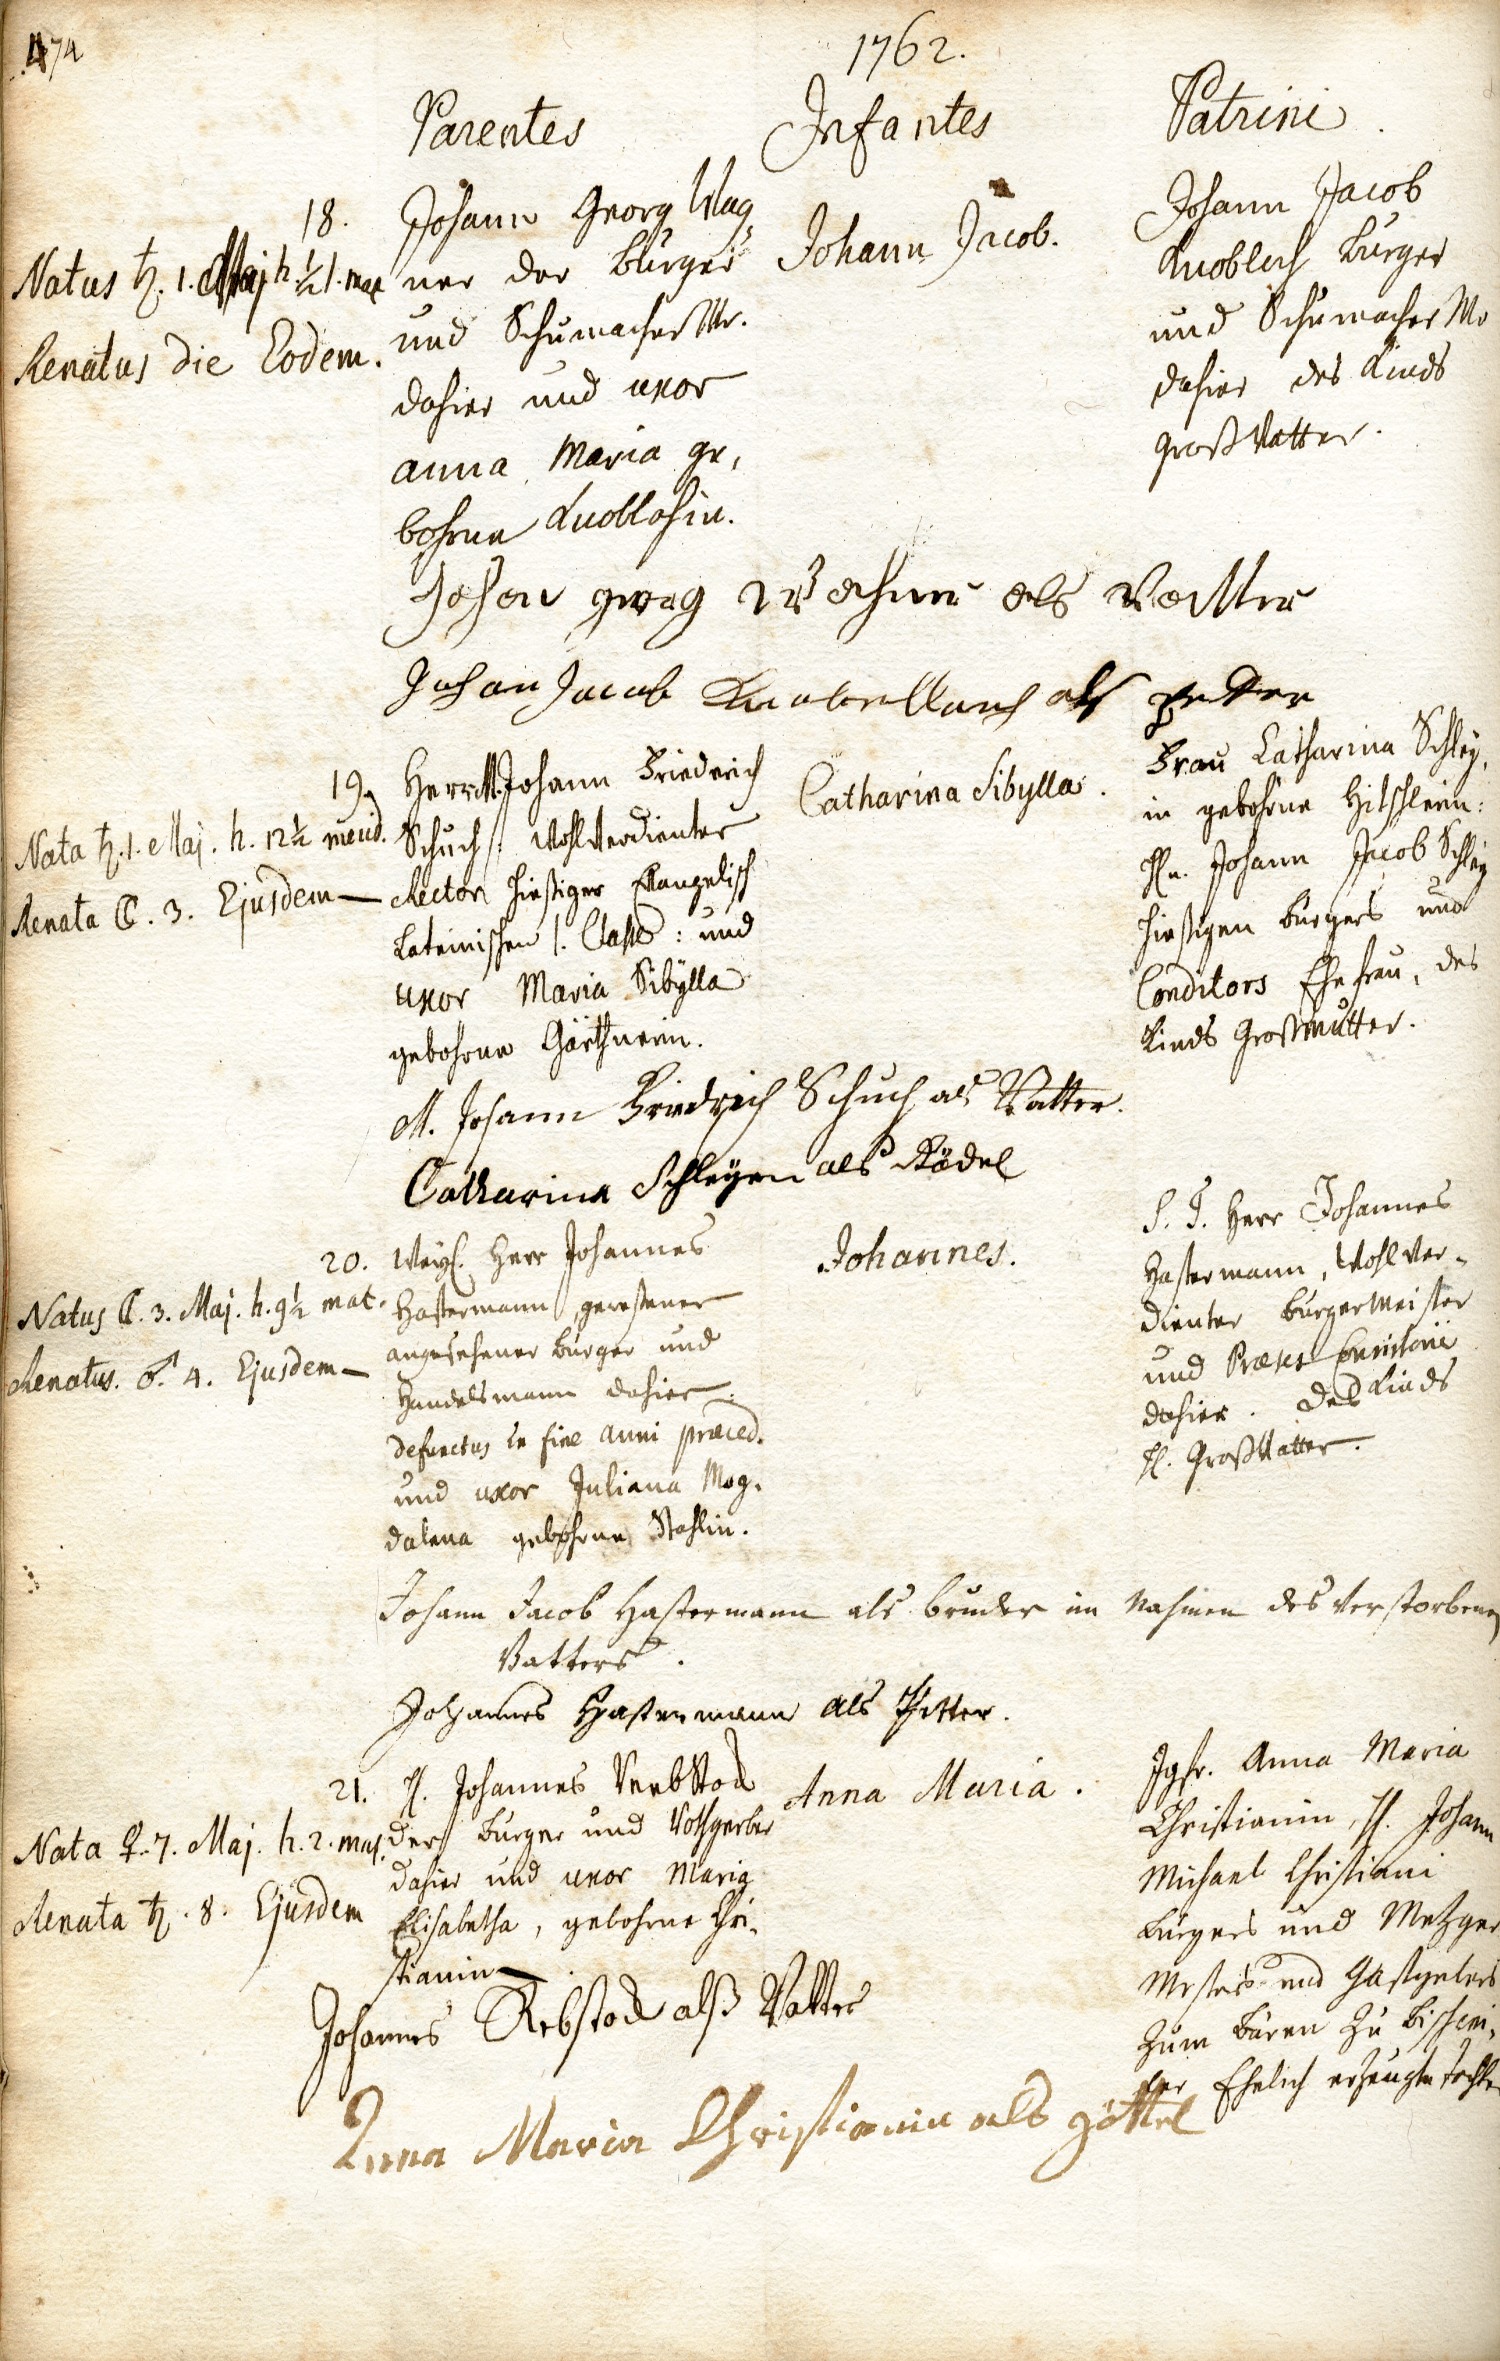 474
1762.
Parentes
Infantes
Patrini.
18.
Natus ♄. 1. Maj h. ½1. mat
Renatus die Eodem.
Johann Georg Wag,
ner der Burger
und Schumacher Mr.
dahier und uxor
anna Maria ge,
bohrne Knoblochin.
Johann Jacob.
Johann Jacob
Knobloch Burger
und Schumacher Mr
dahier des Kinds
Großvatter.
Johan georg als Vatter
Johan Jacob Knobellauch als petter
19.
Nata ♄. 1. Maj. h. 12½ merid.
Renata ☾. 3. Ejusdem
Herr M. Johann Friederich
Schuch: Wohlverdienter
Rector hießiger Evangelisch
Lateinischen Classe: und
uxor Maria Sibÿlla
gebohrne Gärthnerin.
Catharina Sibylla.
Frau Catharina Schleÿ,
in gebohrne
Hn. Johann Jacob Schleÿ
hießigen Burgers und
Conditors Ehefrau, des
Kinds Großmutter.
M. Johann Friedrich Schuch als Vatter.
Catharina Schleyen als
20.
Natus ☾. 3. Maj. h. 9½ mat.
Renatus. ♂. 4. Ejusdem
Weyl. Herr Johannes
Hastermann, geweßener
angesehener Burger und
Handelsmann dahier
defunctus in fine anni præced.
und uxor Juliana Mag.
dalena gebohrne
Johannes.
S. T. Herr Johannes
Hastermann, Wohlver-
dienter Burgermeister
und Præses Consistorii
dahier. des Kinds
H. Großvatter.
Johann Jacob Hastermann als bruder im Nahmen des verstorbenen
Vatters.
Johannes Hastermann als Petter.
21.
Nata ♀. 7. Maj. h. 2. mat.
Renata ♄. 8. Ejusdem
H. Johannes Rebstock
der Burger und Rothgerber
dahier und uxor Maria
Elisabetha, gebohrne Chri-
stianin
Anna Maria.
Jgfr. Anna Maria
Christianin, H. Johann
Michael Christiani
Burgers und Metzger
Mesters und Gastgebers
zum Bären zu
Ehelich erzeugte Tochter
Johannes Rebstock alß Vatter
Anna Maria Christianin als göttel